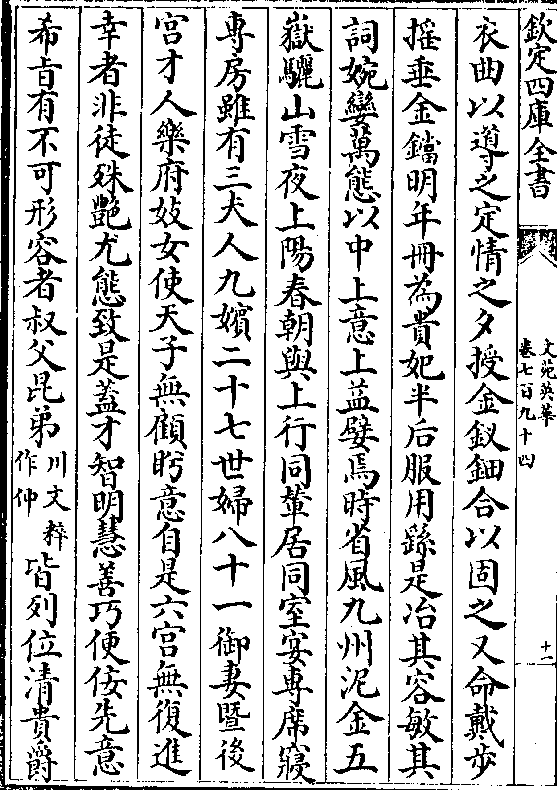 欽定四庫全書
文苑英華
卷七百九十四
十一
衣曲以導之定情之夕授金釵鈿合以固之又命戴步
揺垂金鐺明年冊為貴妃半后服用繇是冶其容敏其
詞婉孌萬態以中上意上益嬖焉時省風九州泥金五
嶽驪山雪夜上陽春朝與上行同輦居同室宴專席寢
専房雖有三夫人九嬪二十七世婦八十一御妻暨後
宫才人樂府妓女使天子無顧眄意自是六宫無復進
幸者非徒殊艶尤態致是蓋才智明慧善巧便佞先意
希㫖有不可形容者叔父昆弟川文粹作仲皆列位清貴爵